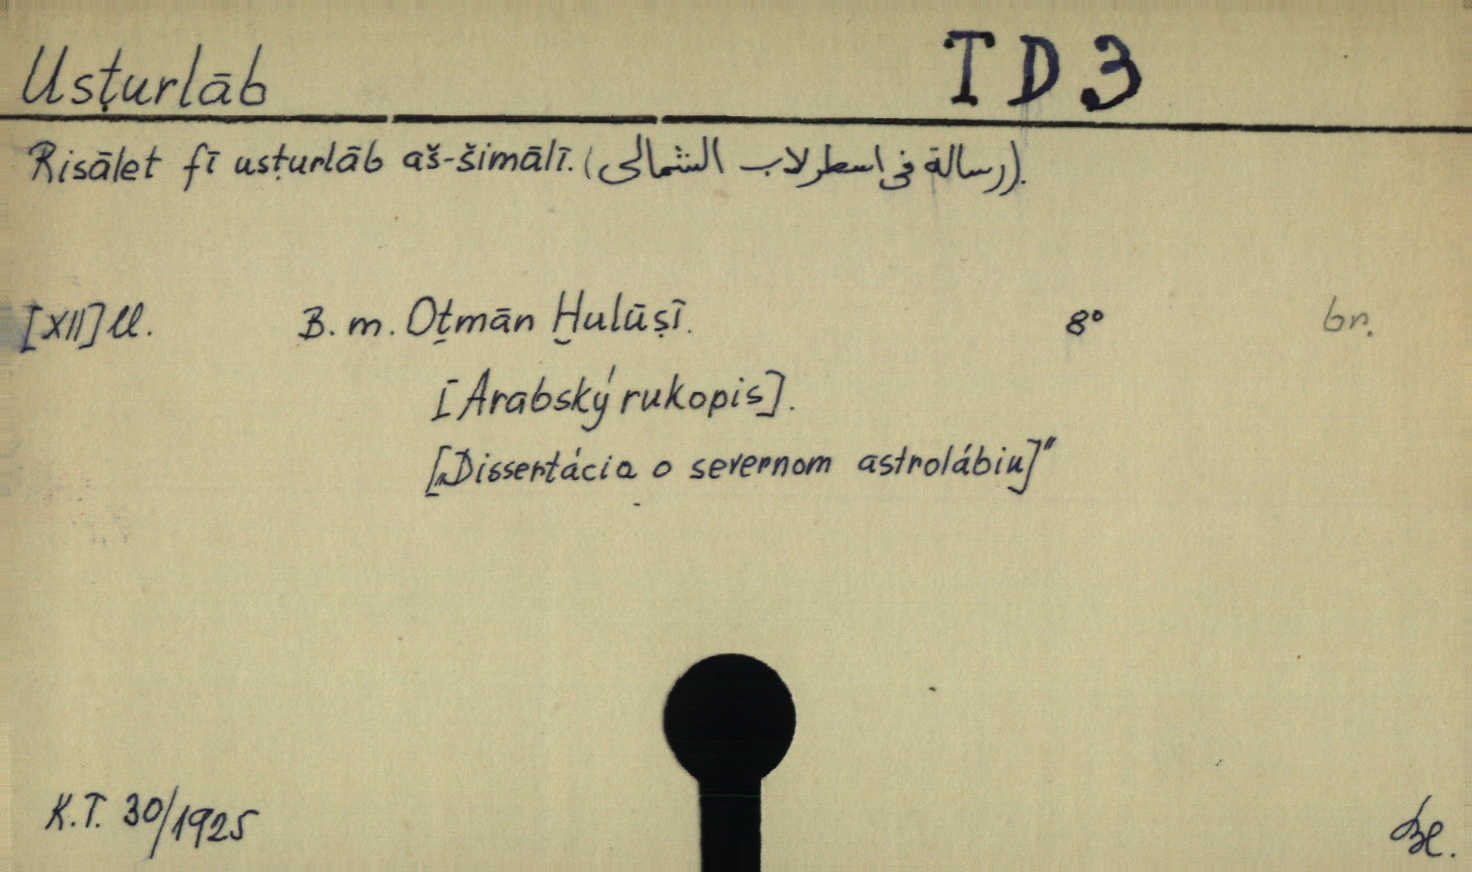 Usṭurlāb TD3
Risālet fī usṭurlāb aš-šimālī. (رسالة فى اسطرلاب الشمالى).
[XII] ll. B. m. Oṯmān Ḫulūṣī. 8° br.
[Arabský rukopis].
[„Dissertácia o severnom astrolábiu]"
K.T. 30/1925